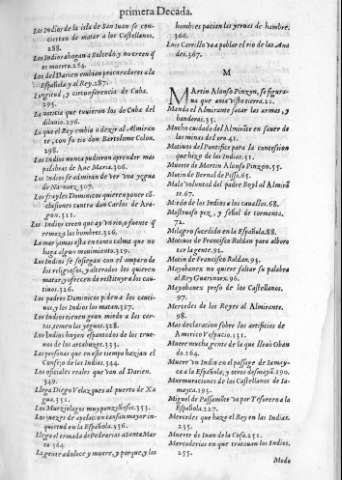 primera Decada.
Los Indios de la isla de San Iuan se con
ciertan de matar a los Castellanos.
288.
Los Indios ahogan a Salzedo, y no creen q̃
es muerto. 264.
Los del Darien embian procuradores a la
Española y al Rey. 287.
Longitud, y circunferencia de Cuba.
295.
La noticia que tuvieron los de Cuba del
diluvio. 296.
Lo que el Rey embia a dezir al Almiran
te, con su tio don Bartolome Colon.
298.
Los Indios nunca pudieron aprender mas
palabras de Ave Maria. 306.
Los Indios se admiran de ver una yegua
de 307.
Los frayles Dominicos quieren poner cõ
clusiones contra don Carlos de Ara-
gon. 311.
Los Indios creen que ay rio, o fuente q̃
remoza los hombres. 326.
La mar jamas esta en tanta calma que no
haga algun movimiento. 329.
Los Indios se sossiegan con el amparo de
los religiosos, y alterados los quieren
matar, y ofrecen de restituyr los cau-
tivos. 326.
Los padres Dominicos piden a los cauti-
vos, y los Indios los matan. 327.
Los Indios tienen gran miedo a los per-
ros, temen las yeguas. 328.
Los Indios huyen espantados de los true-
nos de los arcabuzes. 333.
Las personas que en este tiempo hazian el
Consejo de las Indias. 344.
Los oficiales reales que van al Darien.
349.
Llega Diego Velazquez al puerto de Xa
gua. 351.
Los Murzielagos muy ponzoñosos. 353.
Los juezes de apelacion tassan mayor in-
quietud en la Española. 356.
Llego el armada de Pedrarias a Santa Mar
ta. 364.
La gente adolece y muere, y porque, y los
hombres pacian las yervas de hambre.
366.
Luis Carrillo va a poblar el rio de las Ana
des. 367.
M
MArtin Alonso Pinzon, se figura-
va que avia visto tierra. 22.
Manda el Almirante sacar las armas, y
banderas. 35.
Mucho cuidado del Almirante en saver de
las minas del oro. 45.
Motivos del Pontifice para la concession
que haze de las Indias. 51.
Muerte de Martin Alonso Pinzon. 55.
Motin de Bernal de Pissa. 65.
Mala voluntad del padre Boyl al Almirã
te. 67.
Miedo de los Indios a los cavallos. 68.
Monstruoso pez, y señal de tormenta.
72.
Milagro sucedido en la Española. 88.
Motivos de Francisco Roldan para alboro
tar la gente. 91.
Motin de Francisco Roldan. 93.
Mayobanex no quiere faltar su palabra
al Rey Guarionex. 96.
Mayobanex preso de los Castellanos.
97.
Mercedes de los Reyes al Almirante.
98.
Mas declaracion sobre los artificios de
Americo Vespucio. 131.
Muere mucha gente de la que llevò Ovan
do. 164.
Muere un Indio en el passage de Iamay-
ca a la Española, y otros desmayã. 190.
Murmuraciones de los Castellanos de Ia-
mayca. 195.
Miguel de Passamonte va por Tesorero a la
Española. 227.
Mercedes que haze el Rey en las Indias.
235.
Muerte de Iuan de la Cosa. 251.
Mercaderias en que tratavan los Indios.
255.
Modo